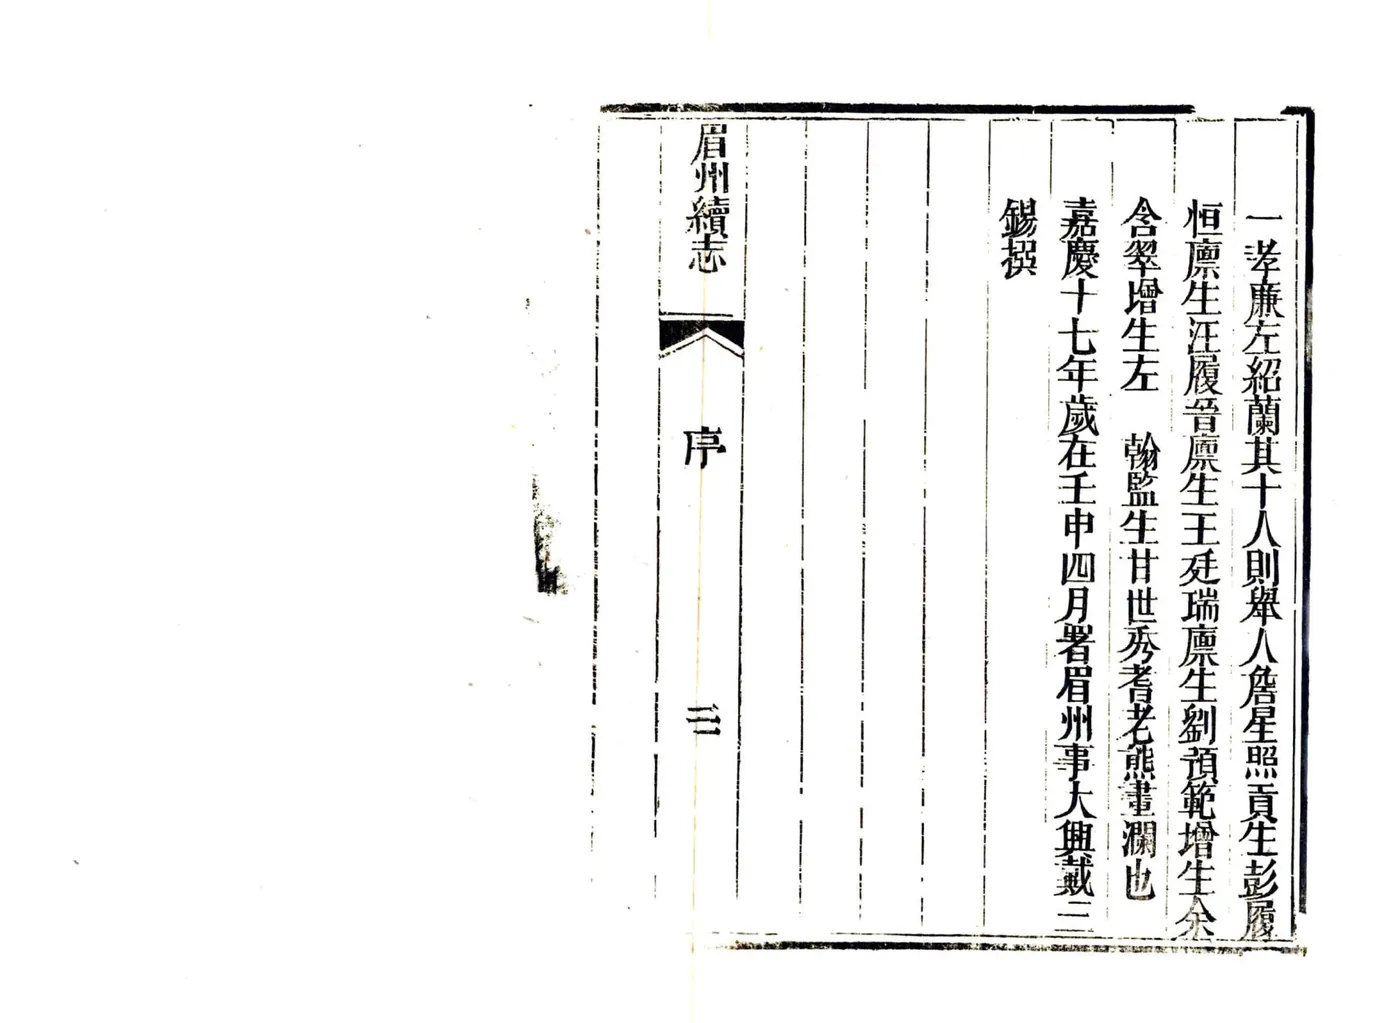 一孝廉左紹蘭其十人則舉人詹星照貢生彭履
恒廪生汪履晉廪生王廷瑞廪生劉預範增生余
含翠增生左　翰監生甘世秀耆老熊畫瀾也
嘉慶十七年歲在壬申四月署眉州事大興戴三
錫撰
眉州續志
序
三